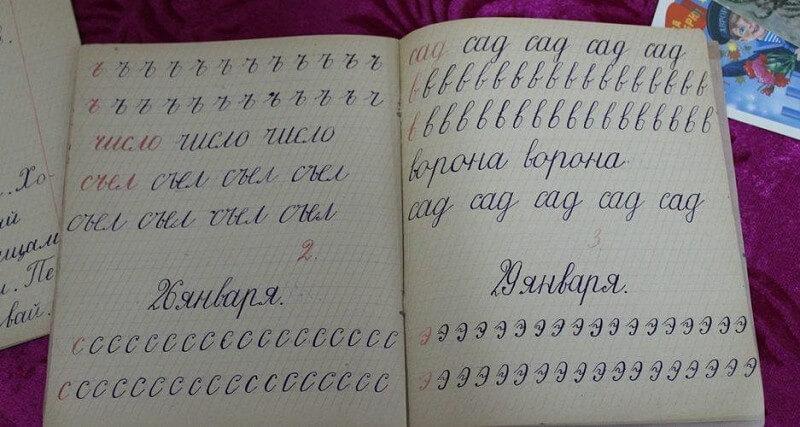 Хо-
ай
ицам
Пе
вай.
ъ ъ ъ ъ ъ ъ ъ ъ ъ ъ ъ ъ
ъ ъ ъ ъ ъ ъ ъ ъ ъ ъ ъ ъ
число число число
съел съел съел съел
съел съел съел съел
2.
26 января.
с с с с с с с с с с с с с с с с с с
с с с с с с с с с с с с с с с с с с
сад сад сад сад сад
в в в в в в в в в в в в в в в в в в в
в в в в в в в в в в в в в в в в в в в
ворона ворона
сад сад сад сад сад
3
29 января.
Э Э Э Э Э Э Э Э Э Э Э Э Э Э Э Э Э
Э Э Э Э Э Э Э Э Э Э Э Э Э Э Э Э Э